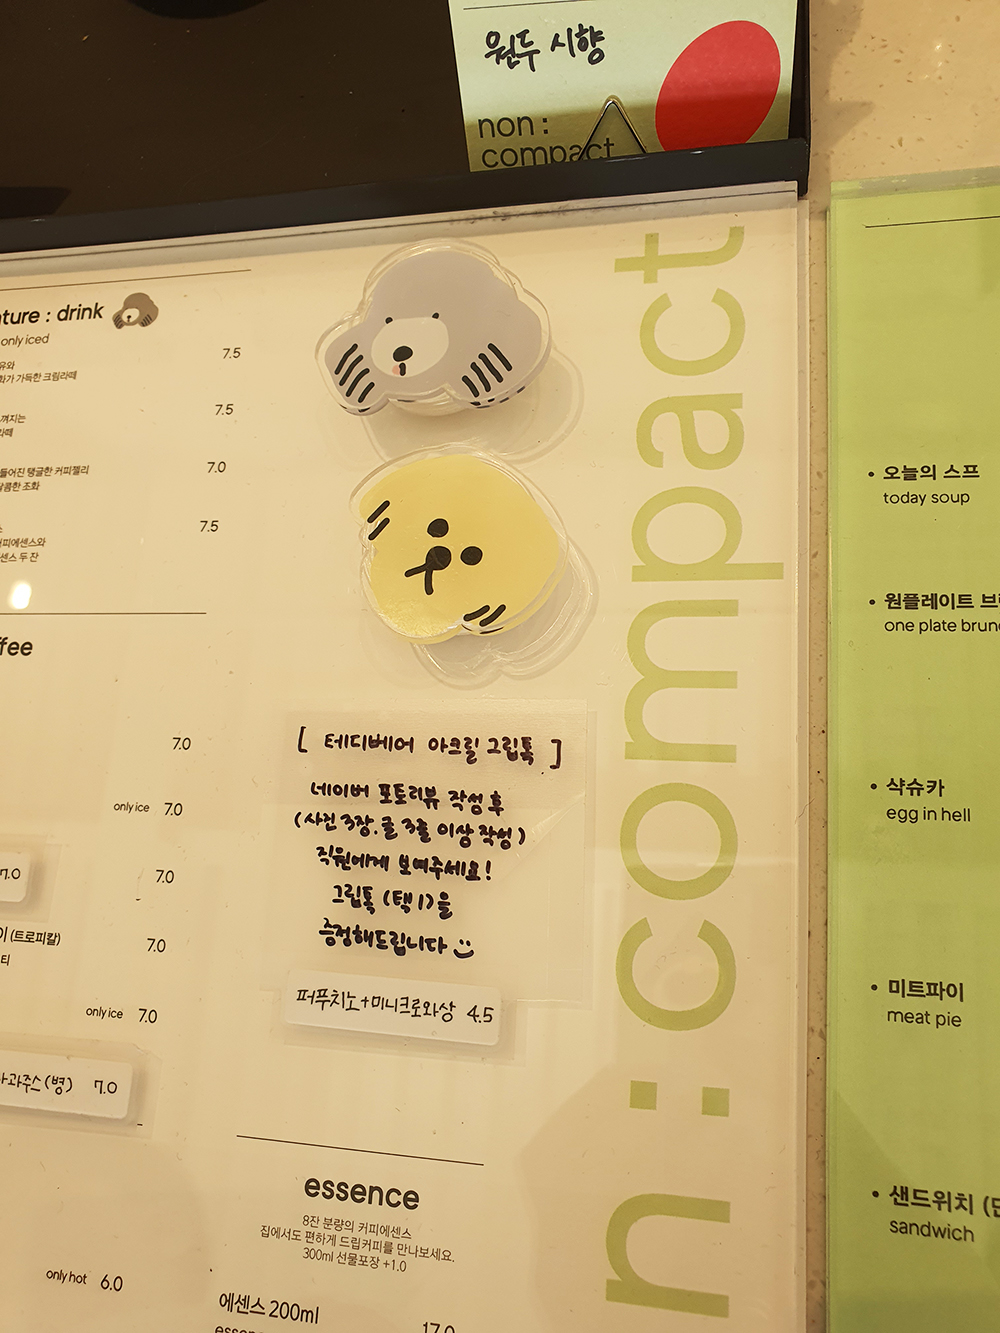 원두 시향
non :
compact
ture : drink
only iced
7.5
화가 가득한 크림라떼
7.5
껴지는
라떼
7.0
들어진 탱글한 커피젤리
달콤한 조화
7.5
커피에센스와
센스 두 잔
ffee
7.0
only ice 7.0
7.0
7.0
(트로피칼) 7.0
티
only ice 7.0
과주스(병) 7.0
only hot 6.0
[ 테디베어 아크릴 그립톡 ]
네이버 포토리뷰 작성 후
(사진 3장, 글 3줄 이상 작성)
직원에게 보여주세요!
그립톡 (택1)을
증정해드립니다
퍼푸치노+미니크로와상 4.5
essence
8잔 분량의 커피에센스
집에서도 편하게 드립커피를 만나보세요.
300ml 선물포장 +1.0
에센스 200ml
17.0
n : compact
• 오늘의 스프
today soup
• 원플레이트
one plate
• 샥슈카
egg in hell
• 미트파이
meat pie
• 샌드위치
sandwich